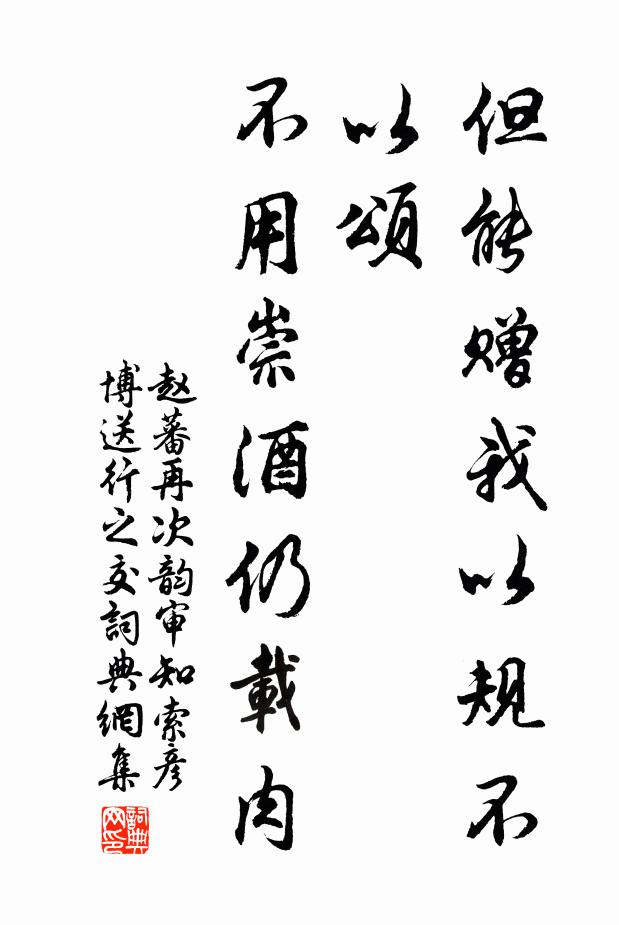 但能赠我以规不
以頌
不用崇酒仍載肉
赵蕃再次韵审知索彦
博送行之交詞典網集
詞典
网印